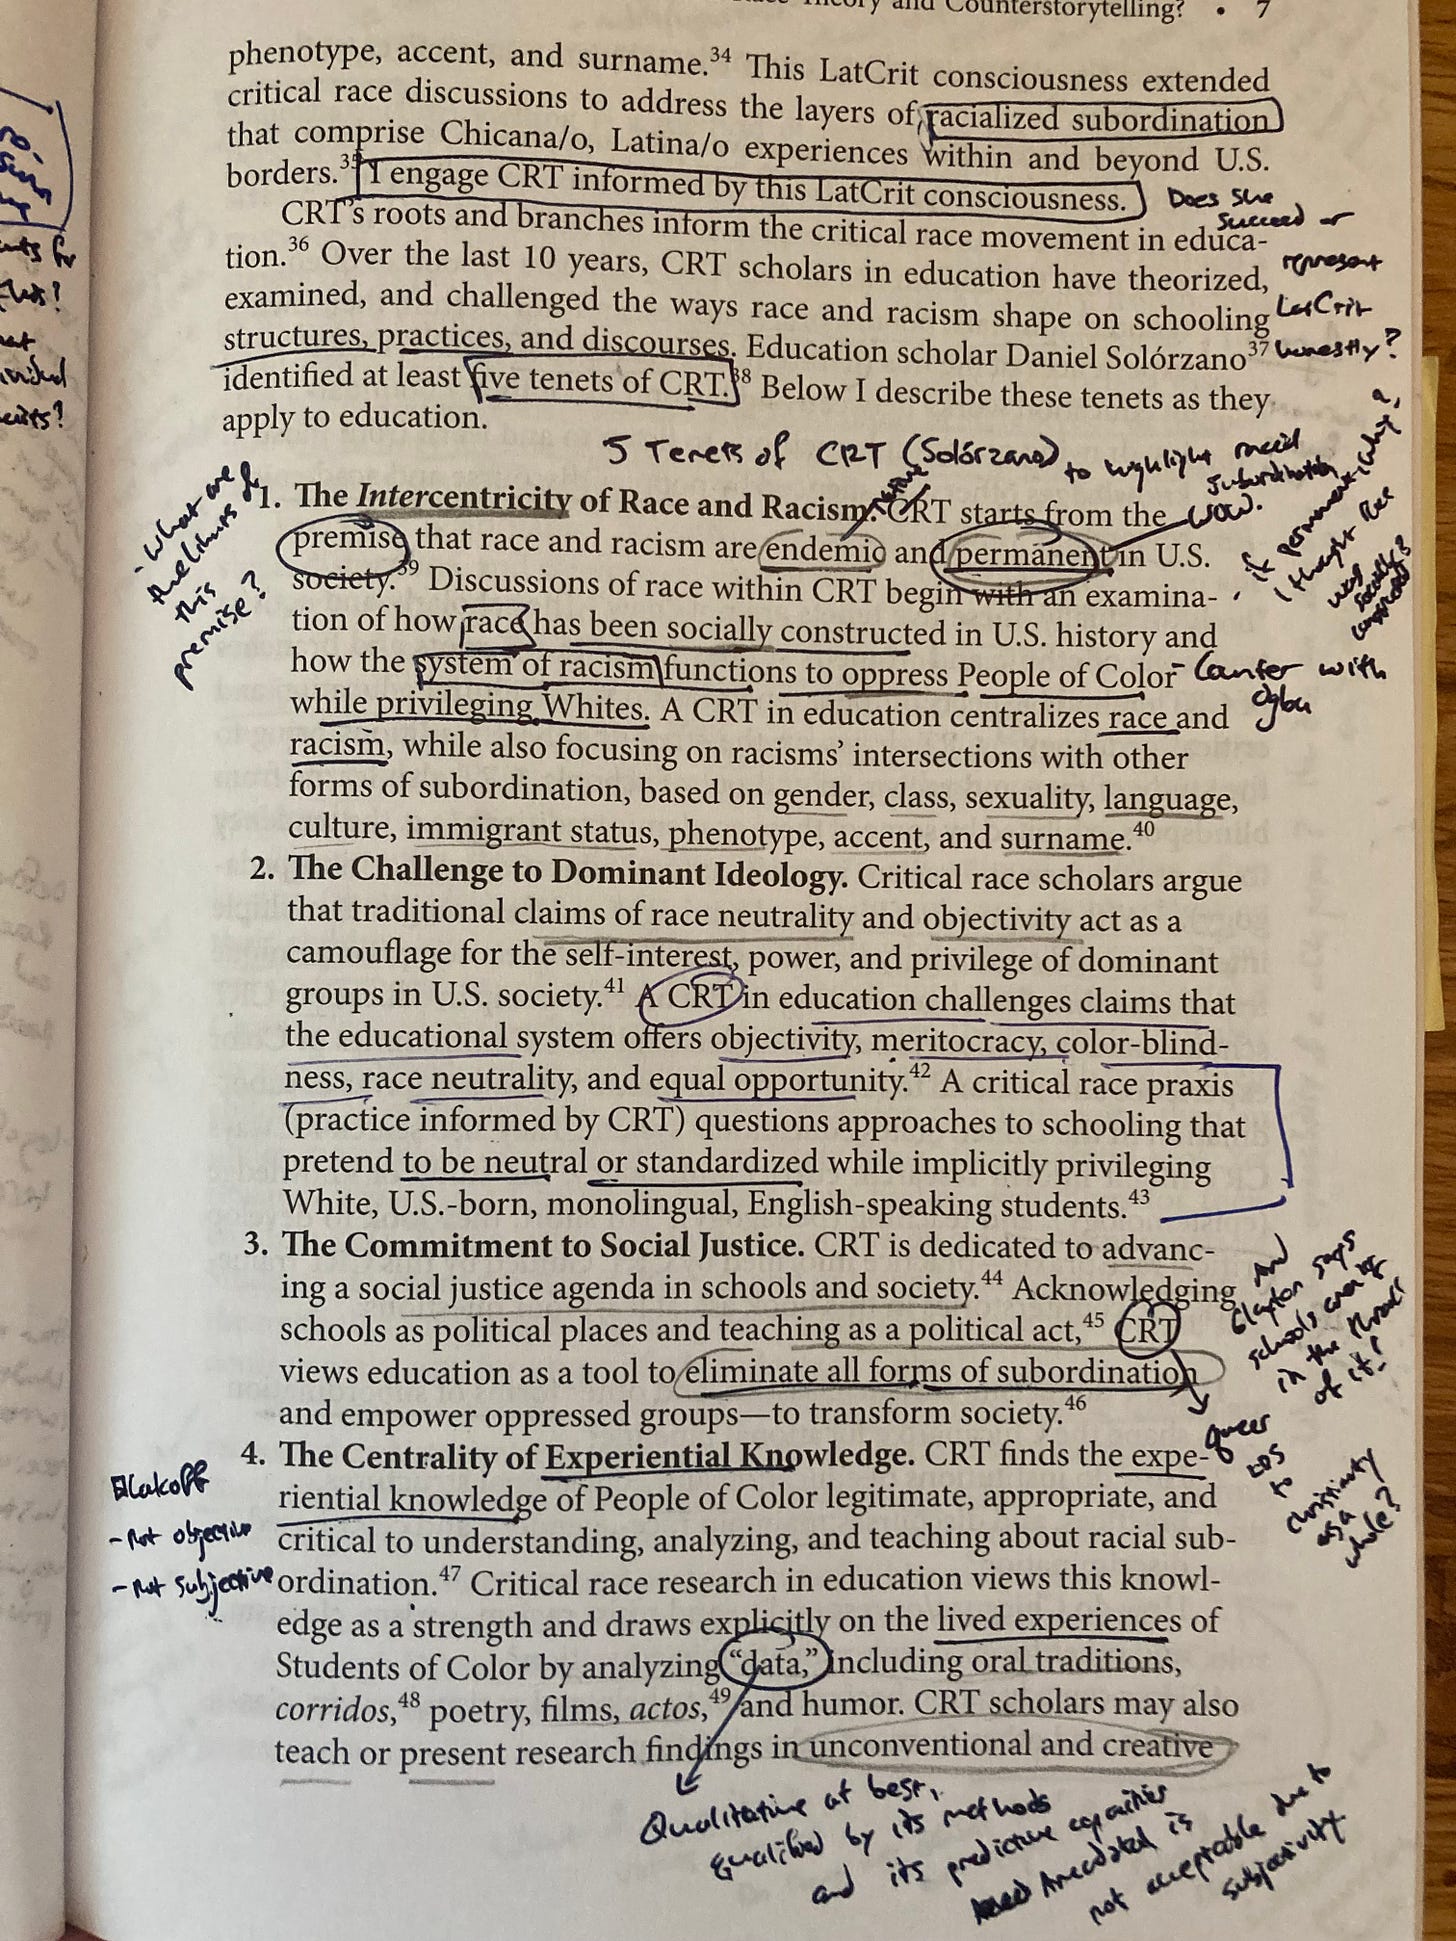 Theory and Counterstorytelling? • 7
phenotype, accent, and surname.34 This LatCrit consciousness extended
critical race discussions to address the layers of racialized subordination
that comprise Chicana/o, Latina/o experiences within and beyond U.S.
borders.35 I engage CRT informed by this LatCrit consciousness.
Does she
succeed or
represent
LatCrit
honestly?
CRT's roots and branches inform the critical race movement in educa-
tion.36 Over the last 10 years, CRT scholars in education have theorized,
examined, and challenged the ways race and racism shape on schooling
structures, practices, and discourses. Education scholar Daniel Solórzano37
identified at least five tenets of CRT.38 Below I describe these tenets as they
apply to education.
5 Tenets of CRT (Solórzano) to highlight racial
subordination
- What are
the limits of
this
premise?
1. The Intercentricity of Race and Racism. CRT starts from the
wow.
premise that race and racism are endemic and permanent in U.S.
society.39 Discussions of race within CRT begin with an examina-
tion of how race has been socially constructed in U.S. history and
how the system of racism functions to oppress People of Color
while privileging Whites. A CRT in education centralizes race and
racism, while also focusing on racisms' intersections with other
forms of subordination, based on gender, class, sexuality, language,
culture, immigrant status, phenotype, accent, and surname.40
if permanent, why?
I thought race
was
socially
constructed?
- Counter with
Ogbu
2. The Challenge to Dominant Ideology. Critical race scholars argue
that traditional claims of race neutrality and objectivity act as a
camouflage for the self-interest, power, and privilege of dominant
groups in U.S. society.41 A CRT in education challenges claims that
the educational system offers objectivity, meritocracy, color-blind-
ness, race neutrality, and equal opportunity.42 A critical race praxis
(practice informed by CRT) questions approaches to schooling that
pretend to be neutral or standardized while implicitly privileging
White, U.S.-born, monolingual, English-speaking students.43
3. The Commitment to Social Justice. CRT is dedicated to advanc-
ing a social justice agenda in schools and society.44 Acknowledging
schools as political places and teaching as a political act,45 CRT
views education as a tool to eliminate all forms of subordination
and empower oppressed groups—to transform society.46
And
Clayton says
schools
in the
of it!
queer
to
christianity
as a
whole?
4. The Centrality of Experiential Knowledge. CRT finds the expe-
riential knowledge of People of Color legitimate, appropriate, and
critical to understanding, analyzing, and teaching about racial sub-
ordination.47 Critical race research in education views this knowl-
edge as a strength and draws explicitly on the lived experiences of
Students of Color by analyzing "data," including oral traditions,
corridos,48 poetry, films, actos,49 and humor. CRT scholars may also
teach or present research findings in unconventional and creative
Lakoff
- Not objective
- Not subjective
Qualitative at best,
qualified by its methods
and its predictive capacities
Anecdotal is
not acceptable due to
subjectivity